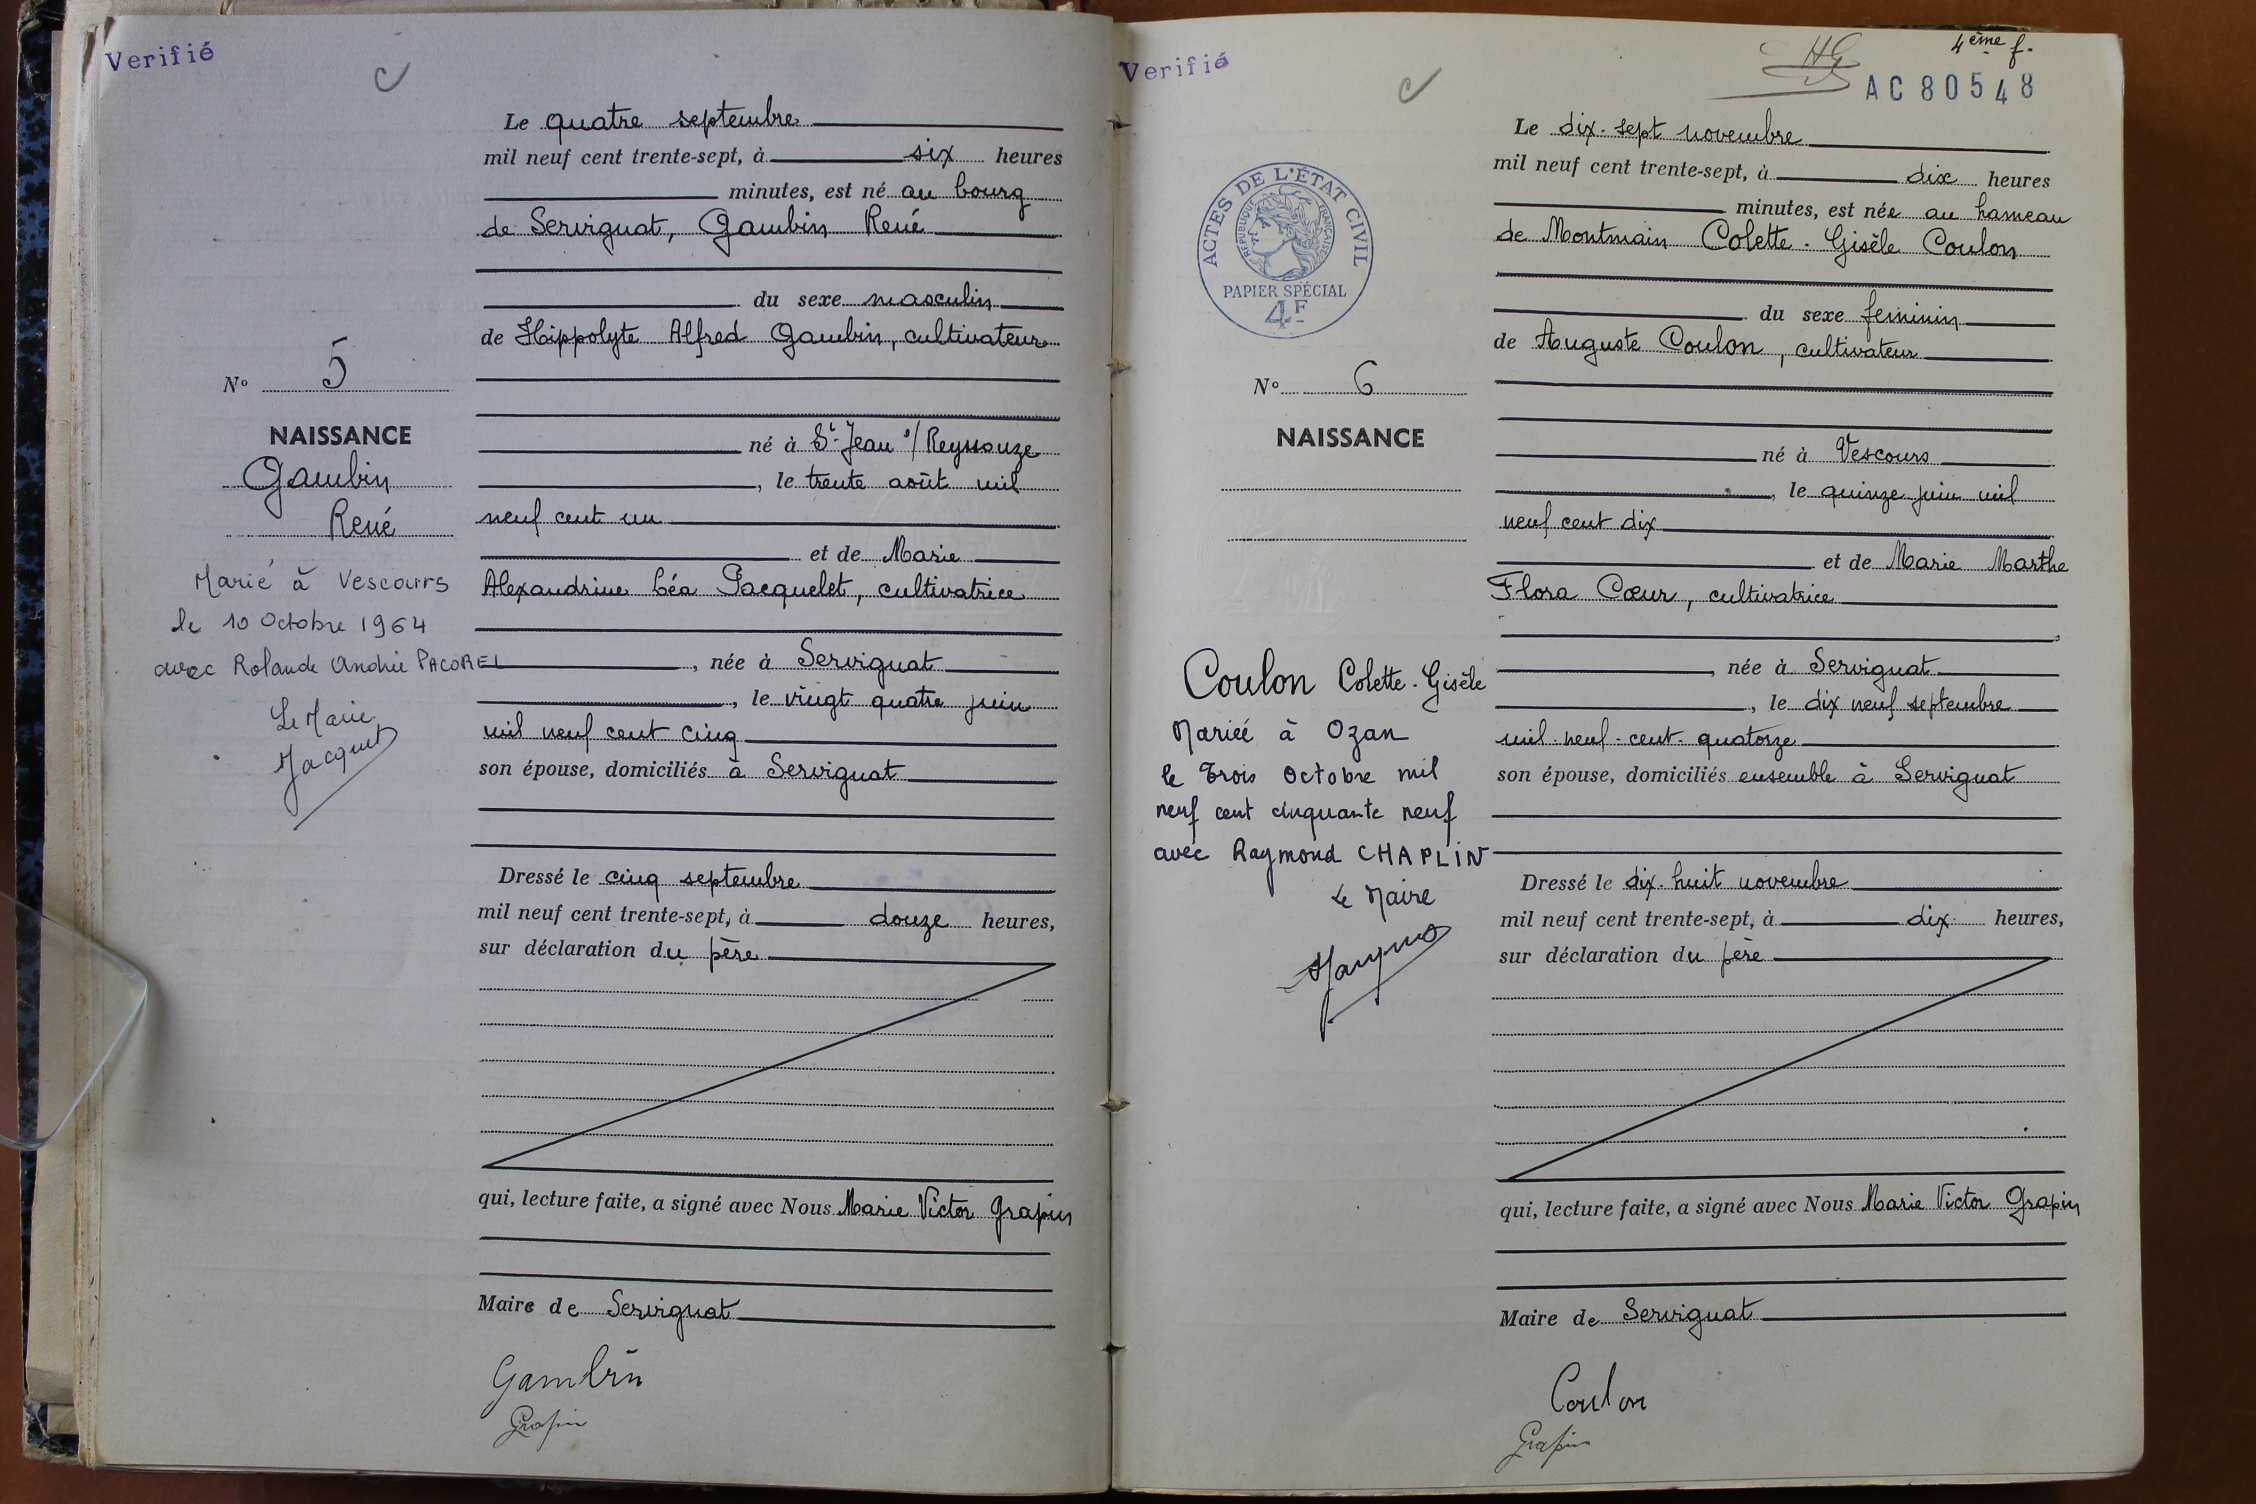 Verifié
Le quatre septembre
mil neuf cent trente-sept, à six heures
minutes, est né au bourg
de Servignat, Gambin René
du sexe masculin
de Hippolyte Alfred Gambin, cultivateur
né à St. Jean s/ Reyssouze
, le trente août mil
neuf cent un
et de Marie
Alexandrine Léa Pacquelet, cultivatrice
, née à Servignat
, le vingt quatre juin
mil neuf cent cinq
son épouse, domiciliés à Servignat
Dressé le cinq septembre
mil neuf cent trente-sept, à douze heures,
sur déclaration du père
qui, lecture faite, a signé avec Nous Marie Victor Grapin
Maire de Servignat
Gambin
Grapin
No 5
NAISSANCE
Gambin
René
Marié à Vescours
le 10 Octobre 1964
avec Rolande Andrée PACOREL
Le Maire
Verifié
4ème f.
AC 80548
Le dix-sept novembre
mil neuf cent trente-sept, à dix heures
minutes, est née au hameau
de Montmain Colette-Gisèle Coulon
du sexe feminin
de Auguste Coulon, cultivateur
né à Vescours
, le quinze juin mil
neuf cent dix
et de Marie Marthe
Flora Cœur, cultivatrice
, née à Servignat
, le dix neuf septembre
mil-neuf-cent-quatorze
son épouse, domiciliés ensemble à Servignat
Dressé le dix-huit novembre
mil neuf cent trente-sept, à dix heures,
sur déclaration du père
qui, lecture faite, a signé avec Nous Marie Victor Grapin
Maire de Servignat
Coulon
Grapin
ACTES DE L'ÉTAT CIVIL
RÉPUBLIQUE FRANÇAISE
PAPIER SPÉCIAL
4F
No 6
NAISSANCE
Coulon Colette-Gisèle
Mariée à Ozan
le Trois Octobre mil
neuf cent cinquante neuf
avec Raymond CHAPLIN
Le Maire